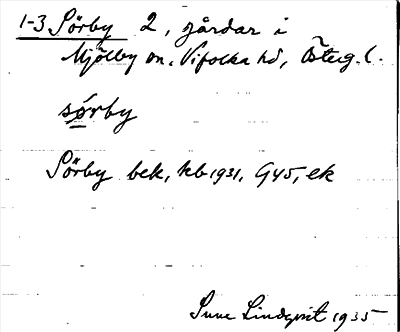 1-3 Sörby 2, gårdar i
Mjölby sn, Vifolka hd, Österg. l.
sørby
Sörby bek, kb 1931, G45, ek
Sune Lindqvist 1935